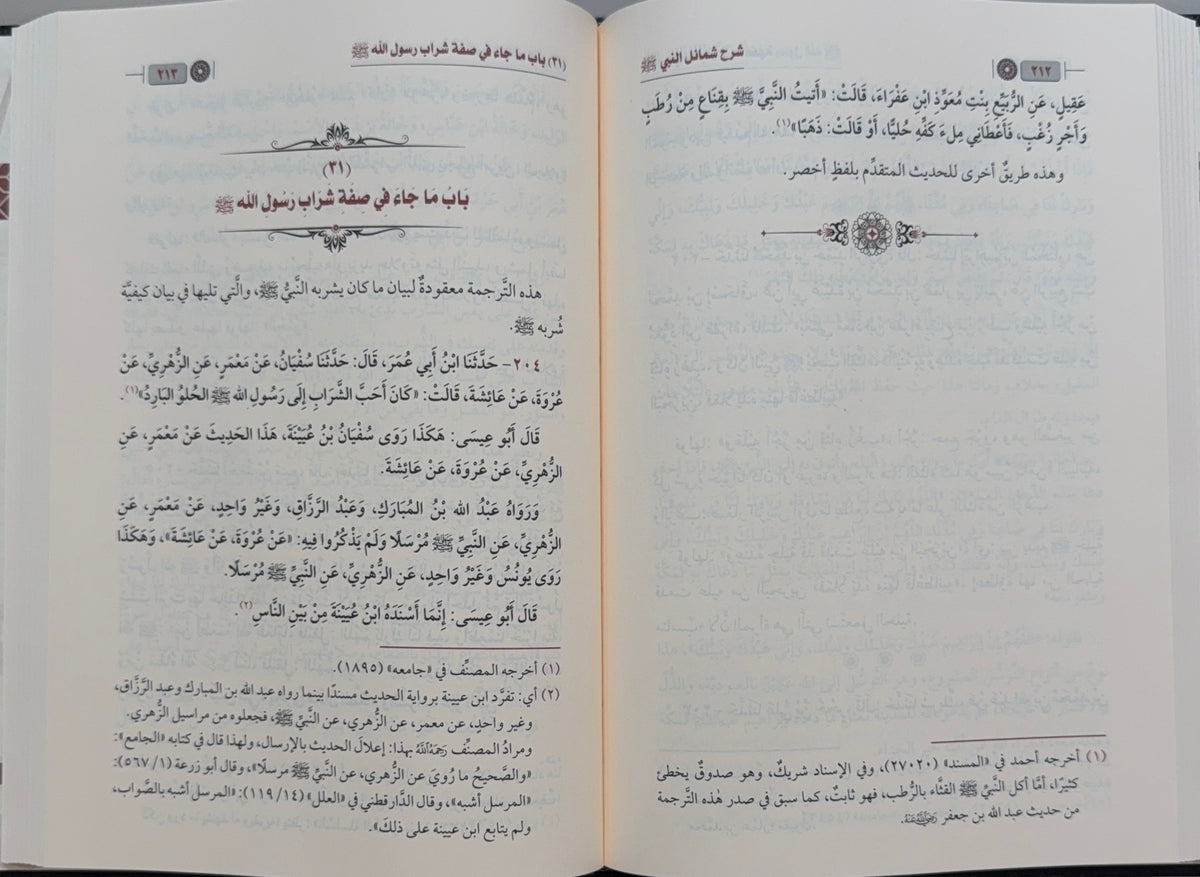 ٢١٢
شرح شمائل النبي ﷺ
عَقِيلٍ، عَنِ الرُّبَيِّعِ بِنْتِ مُعَوِّذِ ابْنِ عَفْرَاءَ، قَالَتْ: «أَتَيتُ النَّبِيَّ ﷺ بِقِنَاعٍ مِنْ رُطَبٍ
وَأَجْرٍ زُغْبٍ، فَأَعْطَانِي مِلءَ كَفِّهِ حُلِيًّا، أَوْ قَالَتْ: ذَهَبًا»(١).
وهذه طريقٌ أخرى للحديث المتقدِّم بلفظٍ أخصر.
(١) أخرجه أحمد في «المسند» (٢٧٠٢٠)، وفي الإسناد شريكٌ، وهو صدوقٌ يخطئ
كثيرًا، أمَّا أكل النَّبيِّ ﷺ القثَّاء بالرُّطب، فهو ثابتٌ، كما سبق في صدر هٰذه التَّرجمة
من حديث عبد الله بن جعفر رَضِيَ اللَّهُ عَنْهُ.
(٣١) باب ما جاء في صفة شراب رسول الله ﷺ
٢١٣
(٣١)
بَابُ مَا جَاءَ فِي صِفَةِ شَرَابِ رَسُولِ الله ﷺ
هذه التَّرجمة معقودةٌ لبيان ما كان يشربه النَّبيُّ ﷺ، والَّتي تليها في بيان كيفيَّة
شُربه ﷺ.
٢٠٤- حَدَّثَنَا ابْنُ أَبِي عُمَرَ، قَالَ: حَدَّثَنَا سُفْيَانُ، عَنْ مَعْمَرٍ، عَنِ الزُّهْرِيِّ، عَنْ
عُرْوَةَ، عَنْ عَائِشَةَ، قَالَتْ: «كَانَ أَحَبَّ الشَّرَابِ إِلَى رَسُولِ الله ﷺ الحُلْوُ البَارِدُ»(١).
قَالَ أَبُو عِيسَى: هَكَذَا رَوَى سُفْيَانُ بْنُ عُيَيْنَةَ، هَذَا الحَدِيثَ عَنْ مَعْمَرٍ، عَنِ
الزُّهْرِيِّ، عَنْ عُرْوَةَ، عَنْ عَائِشَةَ.
وَرَوَاهُ عَبْدُ الله بْنُ المُبَارَكِ، وَعَبْدُ الرَّزَّاقِ، وَغَيْرُ وَاحِدٍ، عَنْ مَعْمَرٍ، عَنِ
الزُّهْرِيِّ، عَنِ النَّبِيِّ ﷺ مُرْسَلًا وَلَمْ يَذْكُرُوا فِيهِ: «عَنْ عُرْوَةَ، عَنْ عَائِشَةَ»، وَهَكَذَا
رَوَى يُونُسُ وَغَيْرُ وَاحِدٍ، عَنِ الزُّهْرِيِّ، عَنِ النَّبِيِّ ﷺ مُرْسَلًا.
قَالَ أَبُو عِيسَى: إِنَّمَا أَسْنَدَهُ ابْنُ عُيَيْنَةَ مِنْ بَيْنِ النَّاسِ(٢).
(١) أخرجه المصنِّف في «جامعه» (١٨٩٥).
(٢) أي: تفرَّد ابن عيينة برواية الحديث مسندًا بينما رواه عبد الله بن المبارك وعبد الرَّزَّاق،
وغير واحدٍ، عن معمر، عن الزُّهري، عن النَّبيِّ ﷺ، فجعلوه من مراسيل الزُّهري.
ومرادُ المصنِّف رَحِمَهُ اللَّهُ بهذا: إعلالُ الحديث بالإرسال، ولهذا قال في كتابه «الجامع»:
«والصَّحيحُ ما رُويَ عن الزهري، عن النَّبيِّ ﷺ مرسلًا»، وقال أبو زرعة (١/ ٥٦٧):
«المرسل أشبه»، وقال الدَّارقطني في «العلل» (١٤/ ١١٩): «المرسل أشبه بالصَّواب،
ولم يتابع ابن عيينة على ذلكَ».